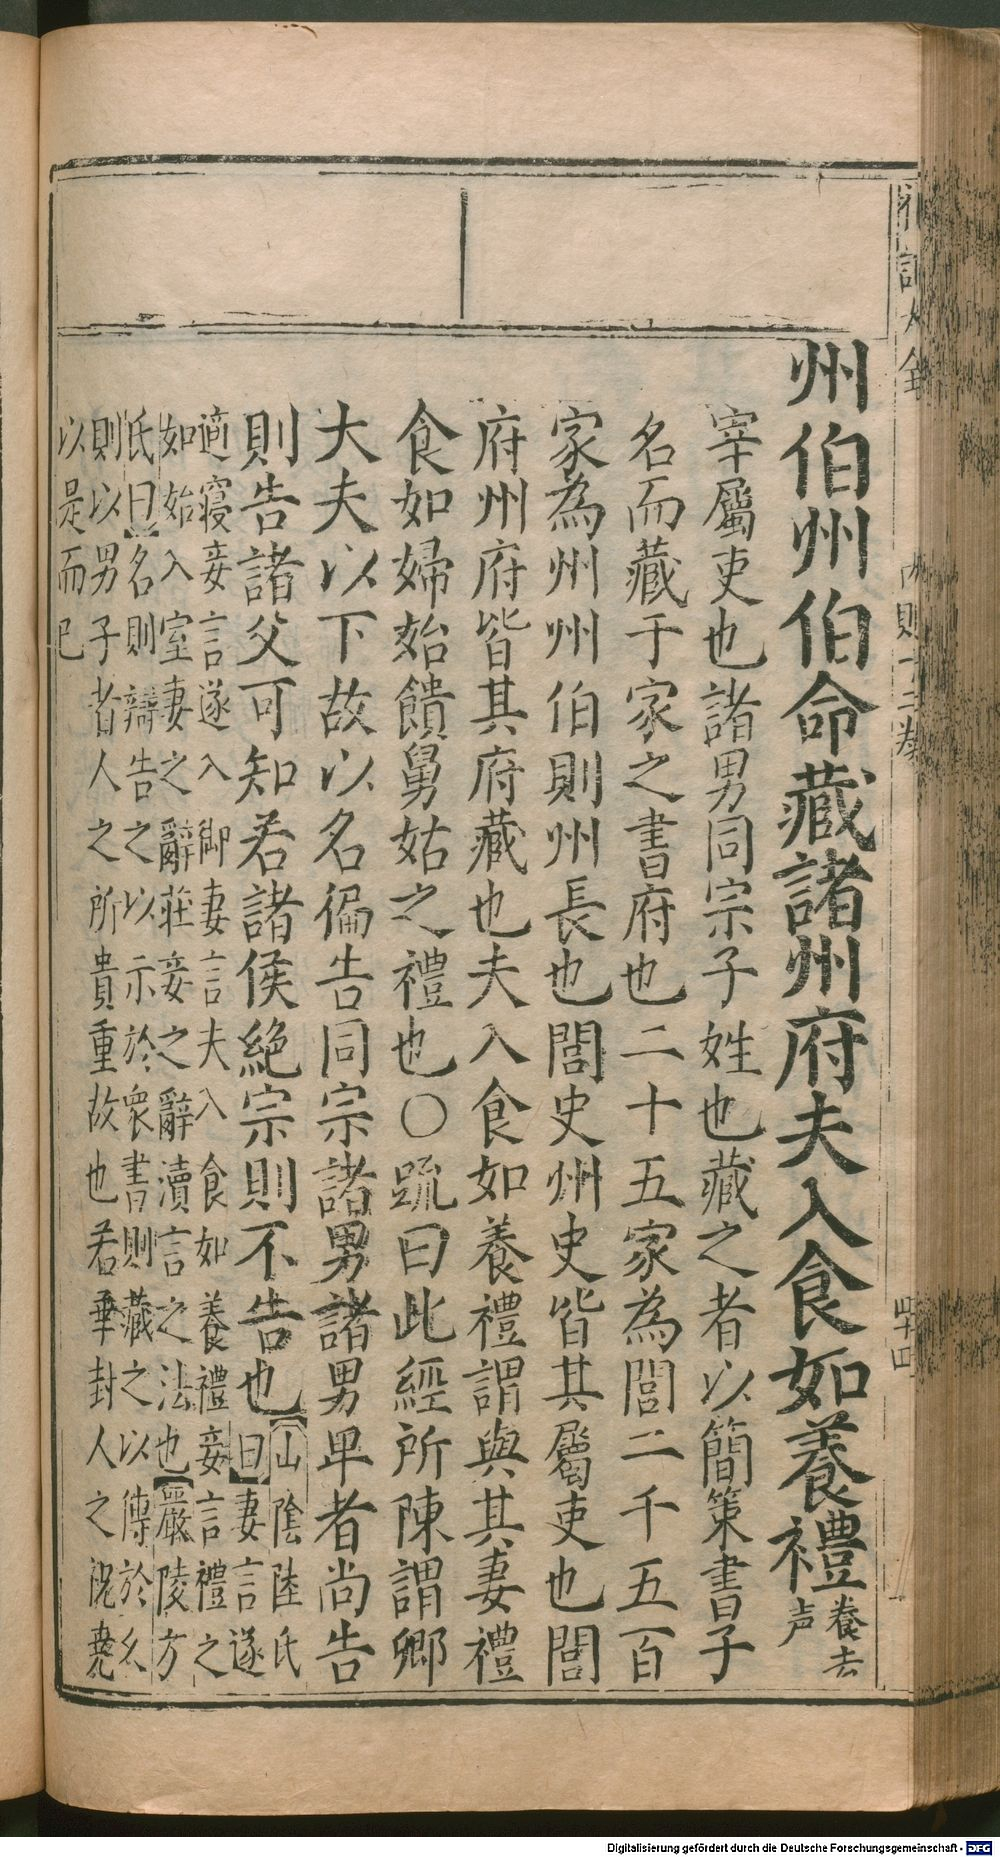 禮記大全
內則十二卷
四十四
州伯州伯命藏諸州府夫入食如養禮養去声
宰屬吏也諸男同宗子姓也藏之者以簡策書子
名而藏于家之書府也二十五家為閭二千五百
家為州州伯則州長也閭史州史皆其屬吏也閭
府州府皆其府藏也夫入食如養禮謂與其妻禮
食如婦始饋舅姑之禮也〇疏曰此經所陳謂卿
大夫以下故以名徧告同宗諸男諸男卑者尚告
則告諸父可知若諸侯絕宗則不告也【山陰陸氏
曰】妻言遂
適寢妾言遂入御妻言夫入食如養禮妾言禮之
如始入室妻之辭莊妾之辭瀆言之法也【嚴陵方
氏曰】名則辯告之以示於衆書則藏之以傳於久
則以男子者人之所貴重故也若華封人之祝堯
以是而已
Digitalisierung gefördert durch die Deutsche Forschungsgemeinschaft - DFG